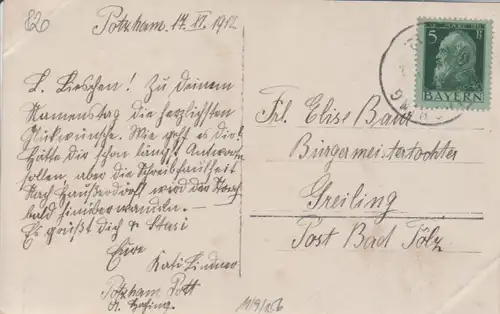 820
Potzham. 17. XI. 1912
L. Lieschen! Zu Deinem
Namenstag die herzlichsten
Glückwünsche. Wie geht es Dir?
Hätte Dir schon längst Antworten
sollen, aber die Schreibfaulheit
Nach wird der
bald hinüberwandern. —
Es grüßt Dich
Eure
Kati Lindner
Potzham Post
5 BAYERN
Frl. Elise
Bürgermeisterstochter
Greiling
Post Bad Tölz